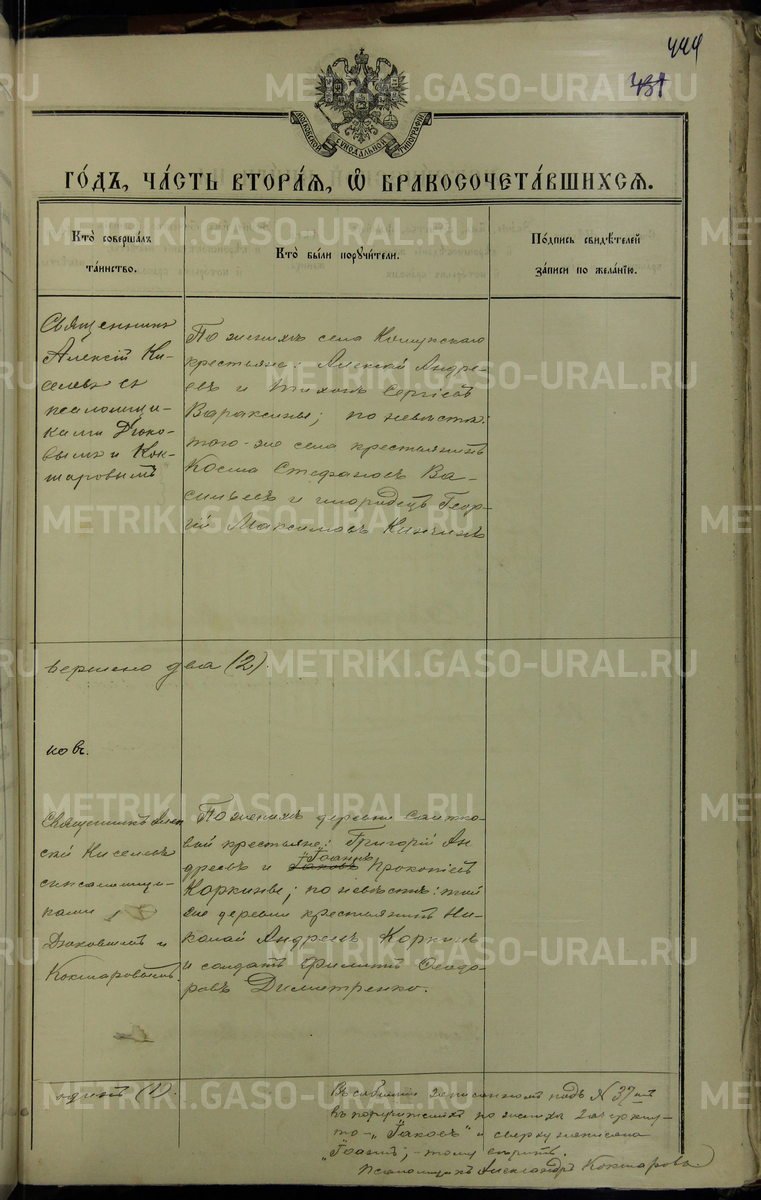 444
431
МОСКОВСКОЙ СѴНОДАЛЬНОЙ ТИПОГРАФІИ
ГО́ДЪ, ЧА́СТЬ ВТОРА́Я, Ѽ БРАКОСОЧЕТА́ВШИХСЯ.
Кто̀ совершалъ
та́инство.
Кто̀ бы́ли порꙋчи́тели.
По́дпись свидѣ́телей
за́писи по жела́нїю.
Священникъ
Алексій Ки-
селевъ съ
псаломщи-
ками Дьяко-
вымъ и Кок-
шаровымъ
По женихѣ села Кошукскаго
крестьяне: Алексѣй Андре-
евъ и Тихонъ Сергіевъ
Вараксины; по невѣстѣ:
того-же села крестьянинъ
Косма Стефановъ Ва-
сильевъ и инородецъ Геор-
гій Максимовъ
вершено два (2).
ковъ.
Священникъ Алек
сій Киселевъ
съ псаломщи-
ками
Дьяковымъ и
Кокшаровымъ.
По женихѣ деревни
вой крестьяне: Григорій Ан-
дреевъ и Іоаннъ Іаковъ Прокопіевъ
Коркины; по невѣстѣ: той
же деревни крестьянинъ Ни-
колай Андреевъ Коркинъ
и солдатъ Филиппъ Ѳеодо-
ровъ Димитренко.
одинъ (1).
Въ событіи записанномъ подъ № 37мъ
въ поручителяхъ по женихѣ зачеркну-
то „Іаковъ" и сверху написано
„Іоаннъ", - тому вѣрить.
Псаломщикъ Александръ Кокшаровъ
METRIKI.GASO-URAL.RU